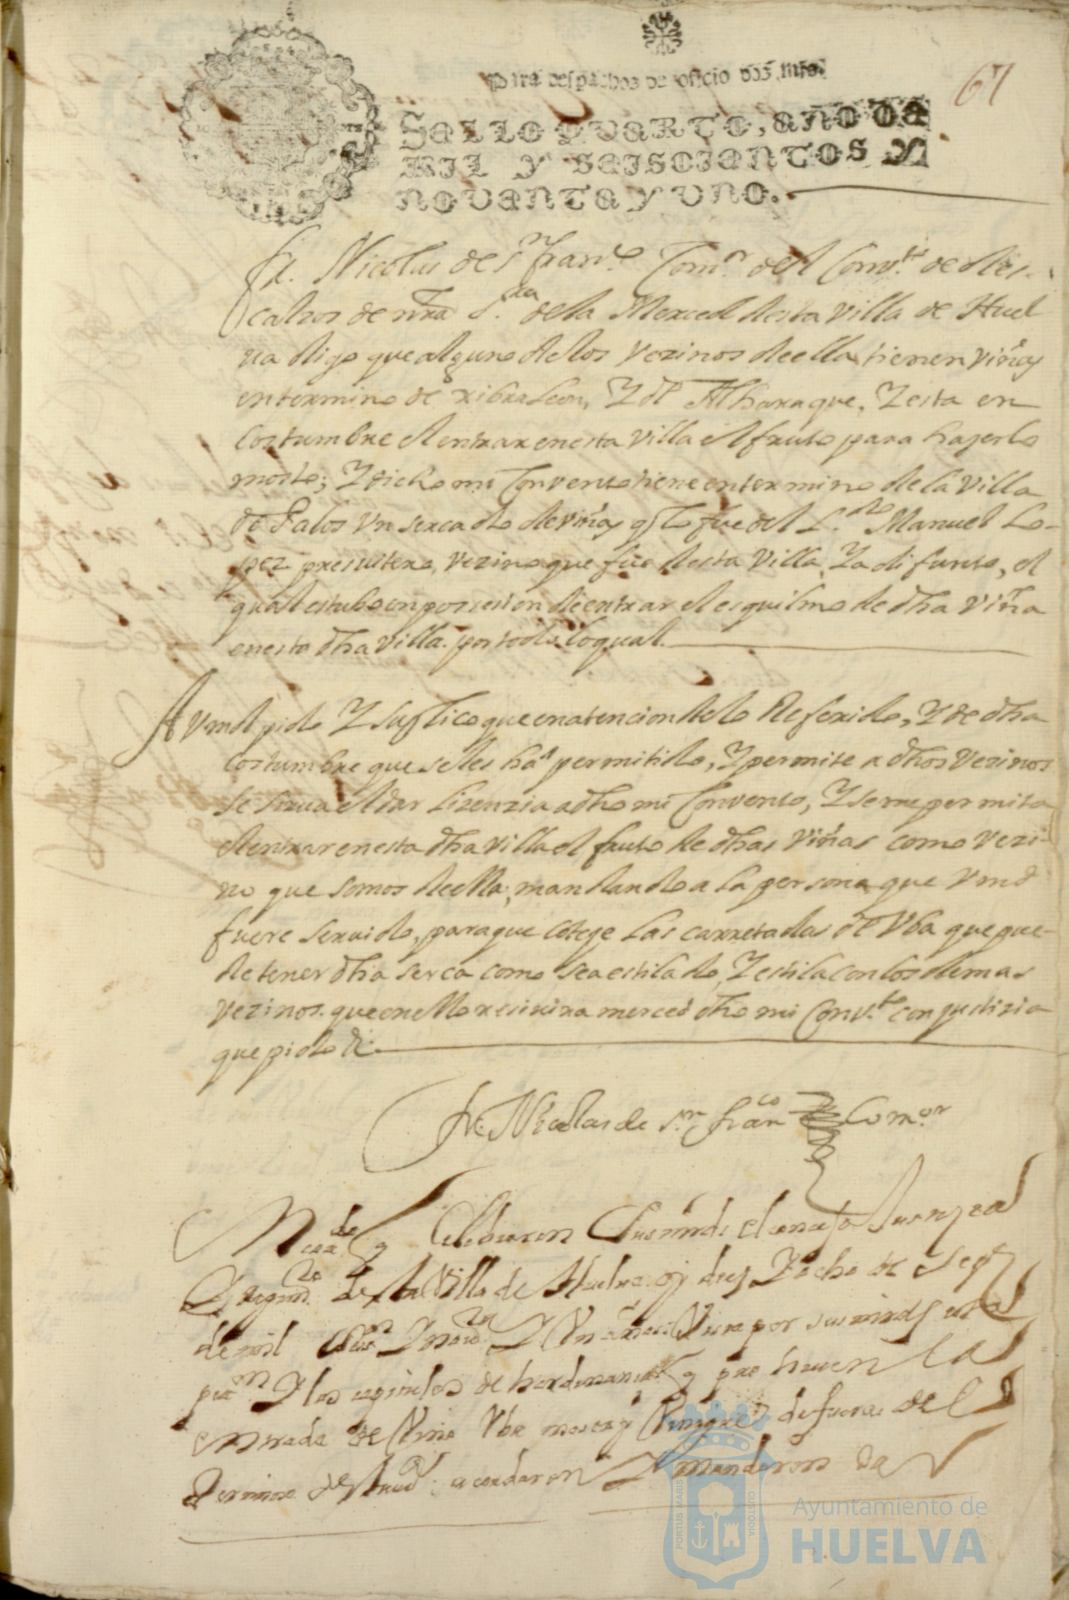 Para despachos de oficio dos mrs.
67
SELLO QVARTO, AÑO DE
MIL Y SEISCIENTOS Y
NOVENTA Y VNO.
Fr. Nicolas de Sn. Franco. Comor. del Convto. de Des-
calsos de nra Sra. de la Merced desta Villa de Huel
va digo que alguno de los Vezinos de ella tienen viñas
en termino de xibraleon, Y de Alharaque, Y esta en
Costumbre el entrar en esta villa el fruto para hazerlo
mosto; Y dicho mi Convento tiene en termino de la Villa
de Palos Vn sercado de viñas q lo fue del Ldo. Manuel Lo-
pez presvitero, vezino que fue desta Villa, Ya difunto, el
qual estubo en possesion de entrar el esquilmo de dha Viña
en esta dha villa. por todo lo qual.
A Vmd pido Y suplico que en atencion de lo Referido, Y de dha
Costumbre que se les ha permitido, Y permite a dhos Vezinos
se sirva de dar Lizenzia a dho mi Convento, Y se me permita
el entrar en esta dha villa el fruto de dhas Viñas como Vezi-
no que somos de ella, mandando a la persona que Vmd
fuere servido, para que coteje las carretadas de Vba que pue-
de tener dha serca como sea estilado, Y estila con los demas
Vezinos. que en ello resivira merced dho mi Convto. con justizia
que pido &.
Fr. Nicolas de Sn. Franco. Comor.
Celebraron
de la Villa de Huelva oy dies Y ocho de Sepe
de mil Y Vn años Vista por sus mrds esta
petn. Y los capitulos de hordenanzas q prohiven la
entrada de Vino Vba mosto y Vinagre de fuera del
termino acordaron Y mandaron
PORTUS MARIS
CUSTODIA
Ayuntamiento de
HUELVA